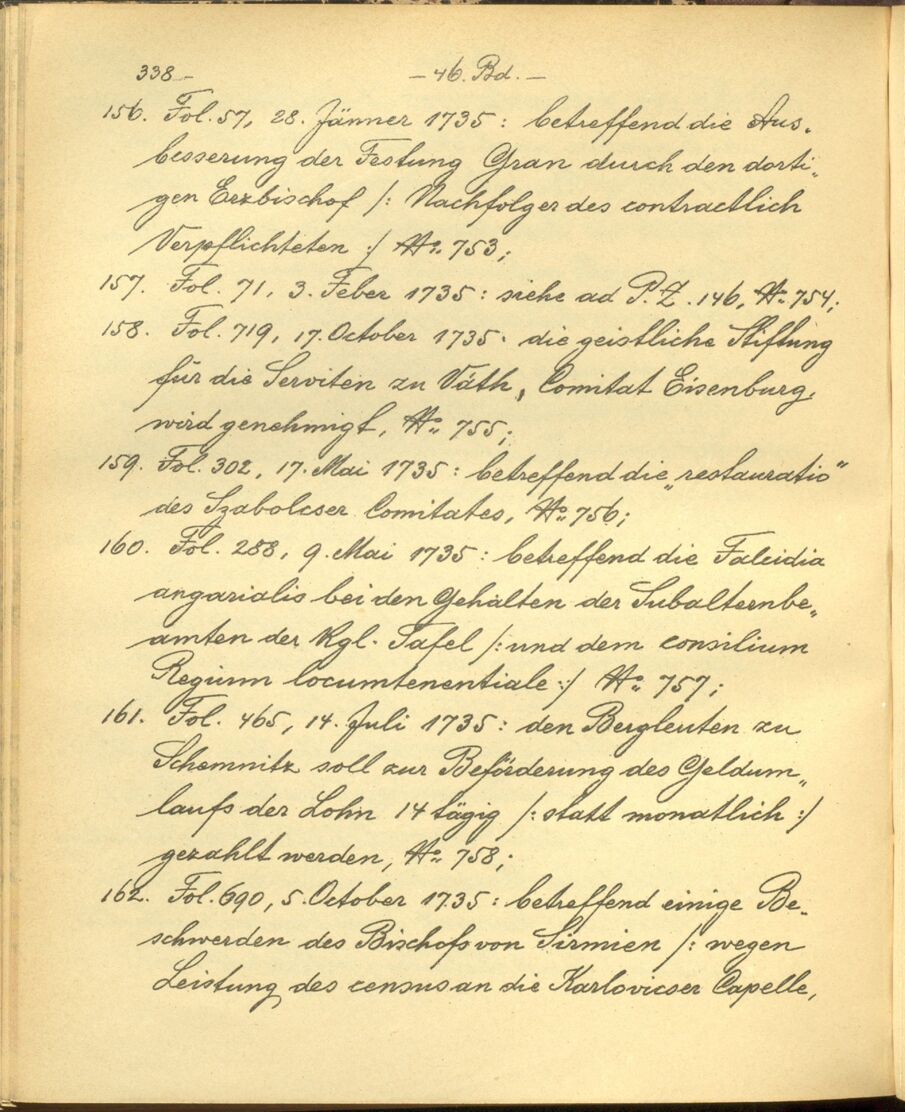 338.- - 46. Bd. -
156. Fol. 57, 28. Jänner 1735: betreffend die Aus-
besserung der Festung Gran durch den dorti„
gen Erzbischof /: Nachfolger des contractlich
Verpflichteten :/ No. 753;
157. Fol. 71, 3. Feber 1735: siehe ad P. Z. 146, No. 754;
158. Fol. 719, 17. October 1735: die geistliche Stiftung
für die Serviten zu Váth, Comitat Eisenburg,
wird genehmigt, No. 755;
159. Fol. 302, 17. Mai 1735: betreffend die „restauratio“
des Szabolcser Comitates, No. 756;
160. Fol. 288, 9. Mai 1735: betreffend die Falcidia
angarialis bei den Gehalten der Subalternbe„
amten der Kgl. Tafel /: und dem consilium
Regium locumtenentiale :/ No. 757;
161. Fol. 465, 14. Juli 1735: den Bergleuten zu
Schemnitz soll zur Beförderung des Geldum„
laufs der Lohn 14 tägig /: statt monatlich :/
gezahlt werden, No. 758;
162. Fol. 690, 5. October 1735: betreffend einige Be-
schwerden des Bischofs von Sirmien /: wegen
Leistung des census an die Karlovicser Capelle,